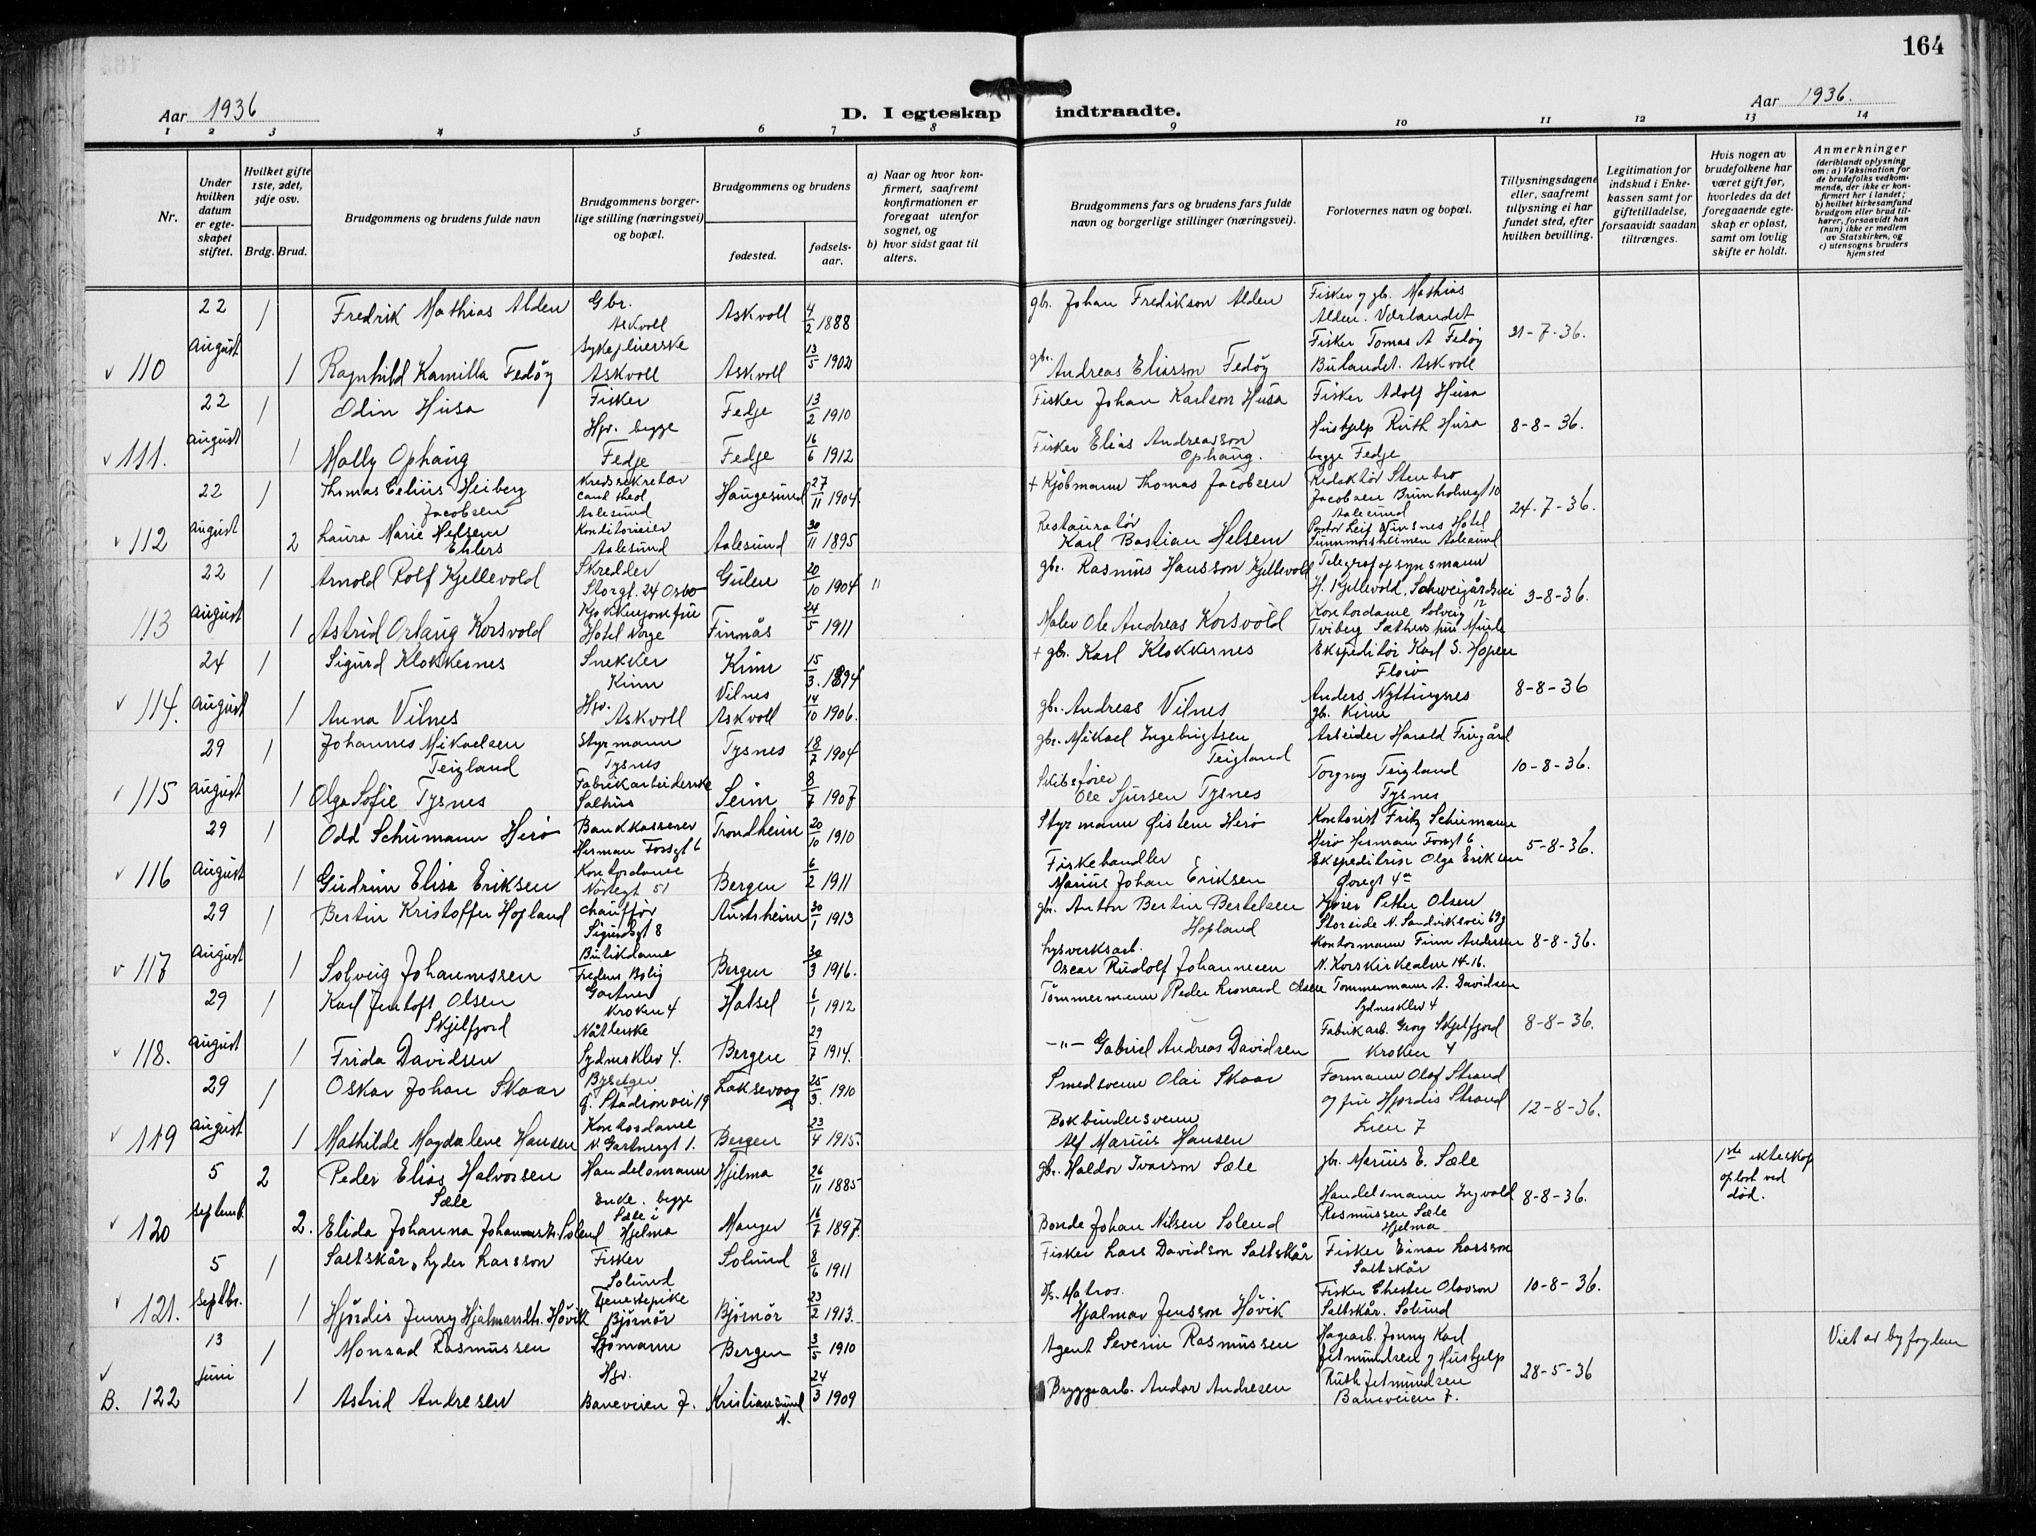 164
Aar 1936
D. I egteskap indtraadte.
Aar 1936.
1 2 3 4 5 6 7 8 9 10 11 12 13 14
Nr.
Under hvilken datum er egteskapet stiftet.
Hvilket gifte 1ste, 2det, 3dje osv.
Brdg. Brud.
Brudgommens og brudens fulde navn
Brudgommens borgerlige stilling (næringsvei) og bopæl.
Brudgommens og brudens
fødested.
fødselsaar.
a) Naar og hvor konfirmert, saafremt konfirmationen er foregaat utenfor sognet, og
b) hvor sidst gaat til alters.
Brudgommens fars og brudens fars fulde navn og borgerlige stillinger (næringsvei).
Forlovernes navn og bopæl.
Tillysningsdagene eller, saafremt tillysning ei har fundet sted, efter hvilken bevilling.
Legitimation for indskud i Enkekassen samt for giftetilladelse, forsaavidt saadan tiltrænges.
Hvis nogen av brudefolkene har været gift før, hvorledes da det foregaaende egteskap er opløst, samt om lovlig skifte er holdt.
Anmerkninger
(deriblandt oplysning om: a) Vaksination for de brudefolks vedkommende, der ikke er konfirmert her i landet; b) hvilket kirkesamfund brudgom eller brud tilhører, forsaavidt han (hun) ikke er medlem av Statskirken, og c) utensogns bruders hjemsted
22 1 Fredrik Mathias Alden Gbr. Askvoll Askvoll 4/2 1888 gbr. Johan Fredrikson Alden Fisker og gbr. Mathias Alden. Værlandet
110 August 1 Ragnhild Kamilla Fedøy Sykepleierske Askvoll Askvoll 13/5 1902 gbr. Andreas Eliasson Fedøy Fisker Tomas A Fedøy Bulandet. Askvoll 21-7-36.
22 1 Odin Husa Fisker Fedje 13/2 1910 Fisker Johan Karlson Husa Fisker Adolf Husa
111. August 1 Molly Ophaug Hgv. begge Fedje Fedje 16/6 1912 Fisker Elias Andreasson Ophaug. Hushjelp Ruth Husa begge Fedje 8-8-36.
22 1 Thomas Celius Heiberg Jacobsen Kredssekretær cand theol Aalesund Haugesund 27/11 1904 + Kjøbmann Thomas Jacobsen Redaktør Stenbro Jacobsen Aalesund
112 August 2 Laura Marie Helsem Ehlers Konditorieier Aalesund Aalesund 30/11 1895 Restauratør Karl Bastian Helsem Pastor Leif Hotel Sunnmørsheimen Aalesund 24-7-36.
22 1 Arnold Rolf Kjellevold Skredder Storgt. 24 Oslo Gulen 20/10 1904 " gbr. Rasmus Hansson Kjellevold Telegrafopsynsmann H. Kjellevold, Schweigårdsvei 12
113 August 1 Astrid Orlaug Korsvold Kjøkkenjomfru Hotel Norge Finnås 24/5 1911 Maler Ole Andreas Korsvold Kontordame Solveig Tviberg 3-8-36.
24 1 Sigurd Klokkernes Snekker Kinn Kinn 15/3 1894 + gbr. Karl Klokkernes Ekspeditør Karl S. Hopen Florø
114. August 1 Anna Vilnes Hgv. Askvoll Vilnes Askvoll 14/10 1906. gbr. Andreas Vilnes Anders Nyttingnes gb. Kinn 8-8-36
29 1 Johannes Mikaelsen Teigland Styrmann Tysnes Tysnes 18/7 1904 gbr. Mikael Ingebrigtsen Teigland Arbeider Harald Frugård
115 August 1 Olga Sofie Tysnes Fabrikarbeiderske Salhus Seim 8/7 1907 Skibsfører Ole Sjursen Tysnes Torgny Teigland Tysnes 10-8-36.
29 1 Odd Schumann Herø Bankkasserer Herman Fossgt 6 Trondheim 20/10 1910 Styrmann Øistein Herø Kontorist Fritz Schumann Herø Herman Fossgt 6
116 August 1 Gudrun Elisa Eriksen Kontordame Nostegt 51 Bergen 6/2 1911 Fiskehandler Marius Johan Eriksen Ekspeditrise Olga Eriksen Øvregt 4a 5-8-36.
29 1 Bertin Kristoffer Hopland Chauffør Sigurdsgt 8 Austrheim 30/1 1913 gbr. Anton Bertin Bertelsen Hopland Kjører Petter Olsen Storeide N. Sandviksvei 69g
117 August 1 Solveig Johannessen Butikdame Fredens Bolig Bergen 30/3 1916. Lysverksarb. Oscar Rudolf Johannesen Kontormann Finn Andersen N. Korskirkealm 14-16. 8-8-36.
29 1 Karl Jentoft Olsen Skjelfjord Gartner Kroken 4 Hatsel 6/1 1912 Tømmermann Peder Leonard Olsen Tømmermann A. Davidsen Sydneskleiv 4
118. August 1 Frida Davidsen Nåtlerske Sydneskleiv 4. Bergen 29/7 1914. -"- Gabriel Andreas Davidsen Fabrikarb. Georg Skjelfjord Kroken 4 8-8-36.
29 1 Oskar Johan Skaar Byselger G. Stadionvei 19 Laksevaag 25/3 1910 Smedsvenn Olai Skaar Formann Olaf Strand
119 August 1 Mathilde Magdalene Hansen Kontordame N. Gartnergt 1. Bergen 23/4 1915. Bokbindersvenn Alf Marius Hansen og fru Hjørdis Strand Lien 7 12-8-36.
5 2 Peder Elias Halvorsen Sæle Handelsmann Hjelma 26/11 1885 gbr. Haldor Ivarson Sæle gbr. Marius E. Sæle 1ste ekteskap opløst ved død.
120 Septemb. 2. Elida Johanna Johannesdtr. Solend Enke. begge Sæle i Hjelma Manger 16/7 1897. Bonde Johan Nilsen Solend Handelsmann Ingvald Rasmussen Sæle Hjelma 8-8-36.
5 1 Saltskår, Lyder Larsson Fisker Solund Solund 8/6 1911 Fisker Lars Davidson Saltskår Fisker Einar Larsson Saltskår
121. Septbr. 1 Hjørdis Jenny Hjalmarsdtr. Høvik Tjenestepike Bjørnør Bjørnør 23/2 1913. Matros. Hjalmar Jensson Høvik Fisker Chester Olavson Saltskår. Solund 10-8-36.
13 1 Monrad Rasmussen Sjømann Bergen 3/5 1910 Agent Severin Rasmussen Hagearb. Jonny Karl Jetmundsen og Hushjelp Viet av byfogden
B. 122 Juni 1 Astrid Andresen Hgv. Baneveien 7. Kristiansund N. 24/3 1909 Bryggearb. Andor Andresen Ruth Jetmundsen Baneveien 7. 28-5-36